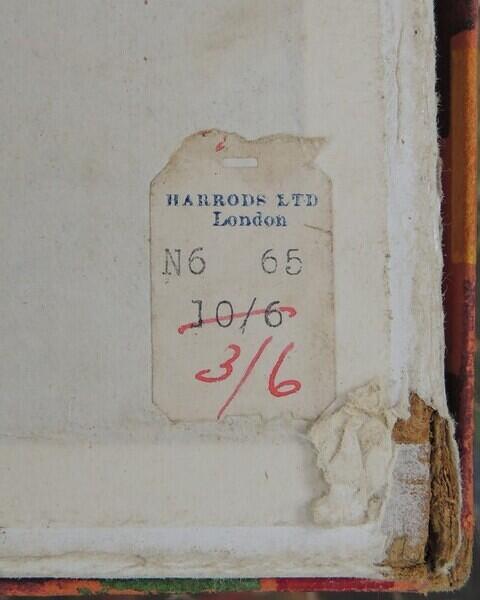 HARRODS LTD
London
N6 65
10/6
3/6